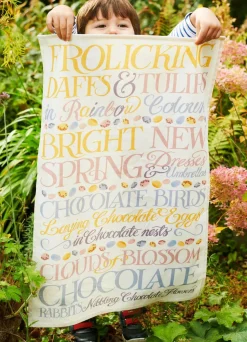 FROLICKING
DAFFS & TULIPS
in Rainbow Colours
BRIGHT NEW
SPRING & Dresses
Umbrellas
CHOCOLATE BIRDS
Laying Chocolate Eggs
in Chocolate nests
CLOUDS of BLOSSOM
CHOCOLATE
RABBITS Nibbling Chocolate Flowers